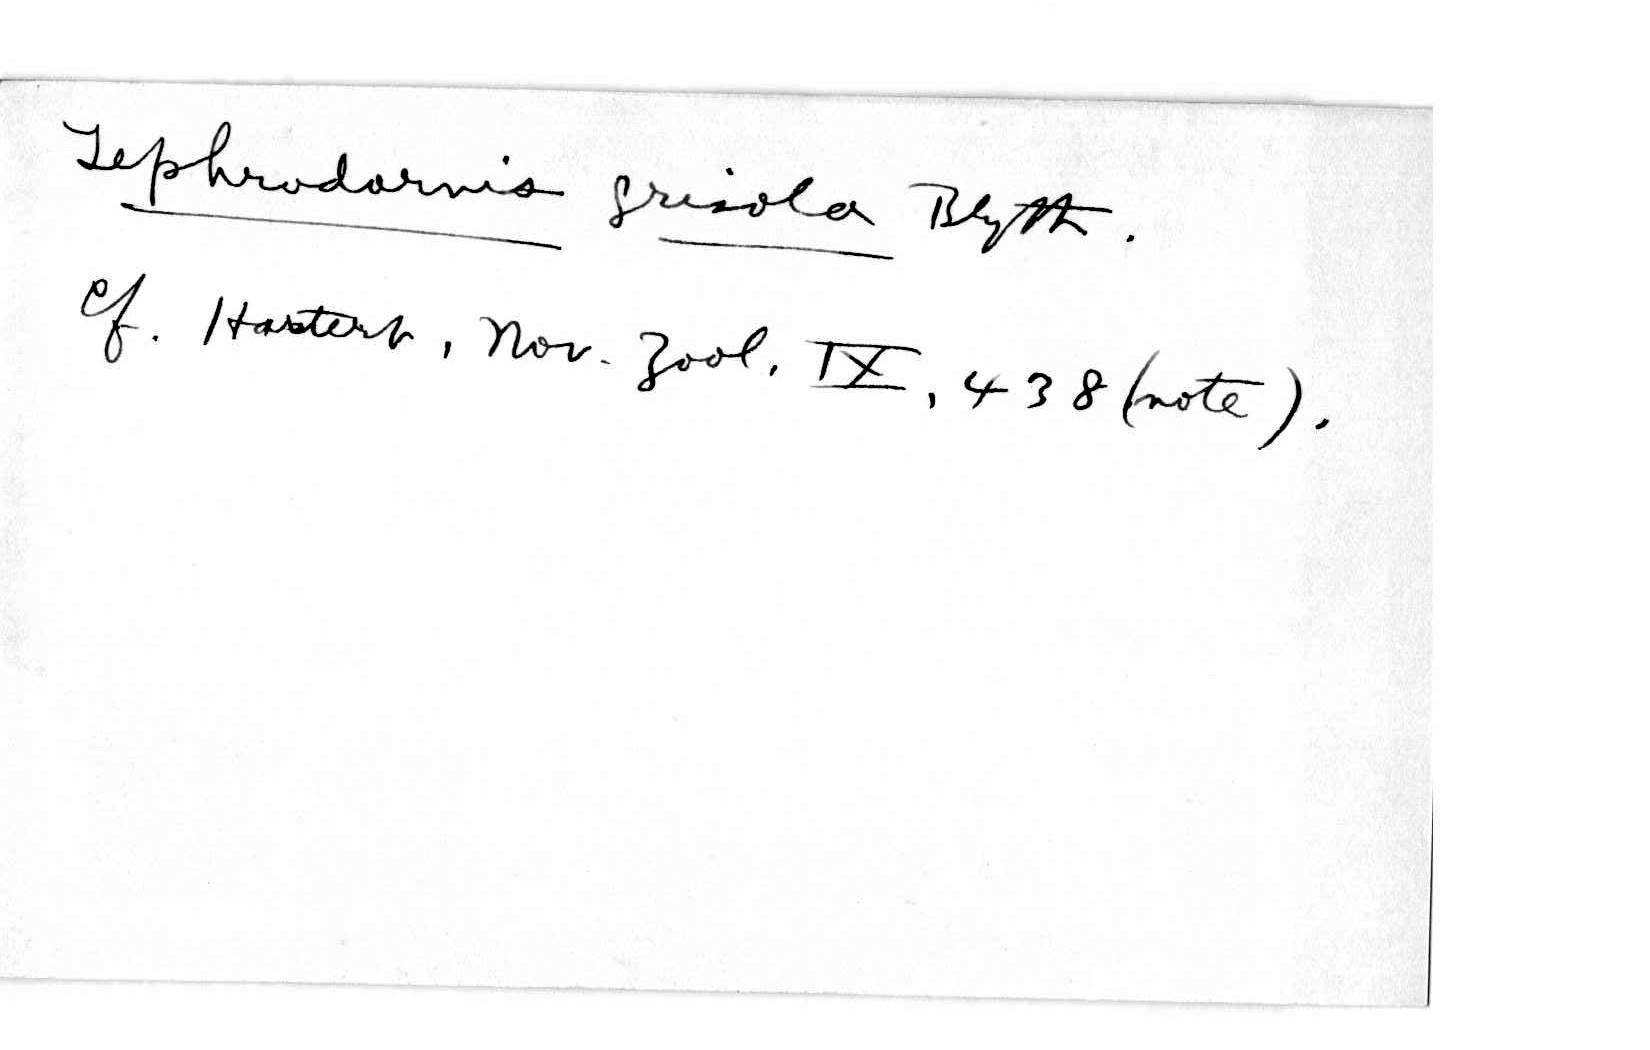 Tephrodornis grisola Blyth.
cf. Hartert, Nov. Zool. IX, 438 (note).